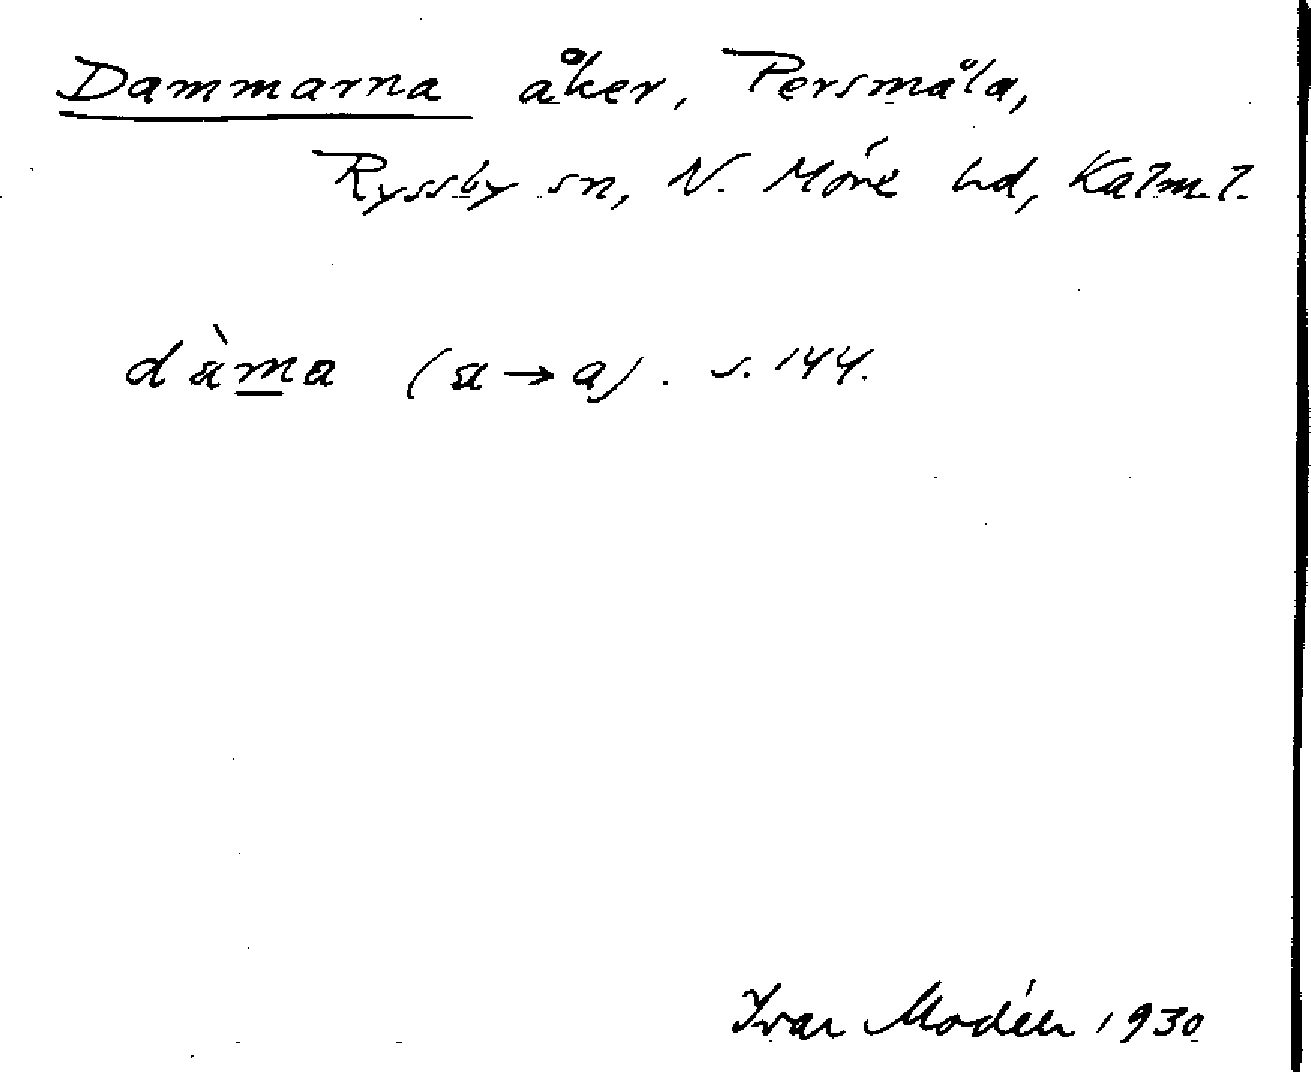 Dammarna åker, Persmåla,
Ryssby sn, N. Möre hd, Kalm. l.
dàma (a → a). s. 144.
Ivar Modéer 1930